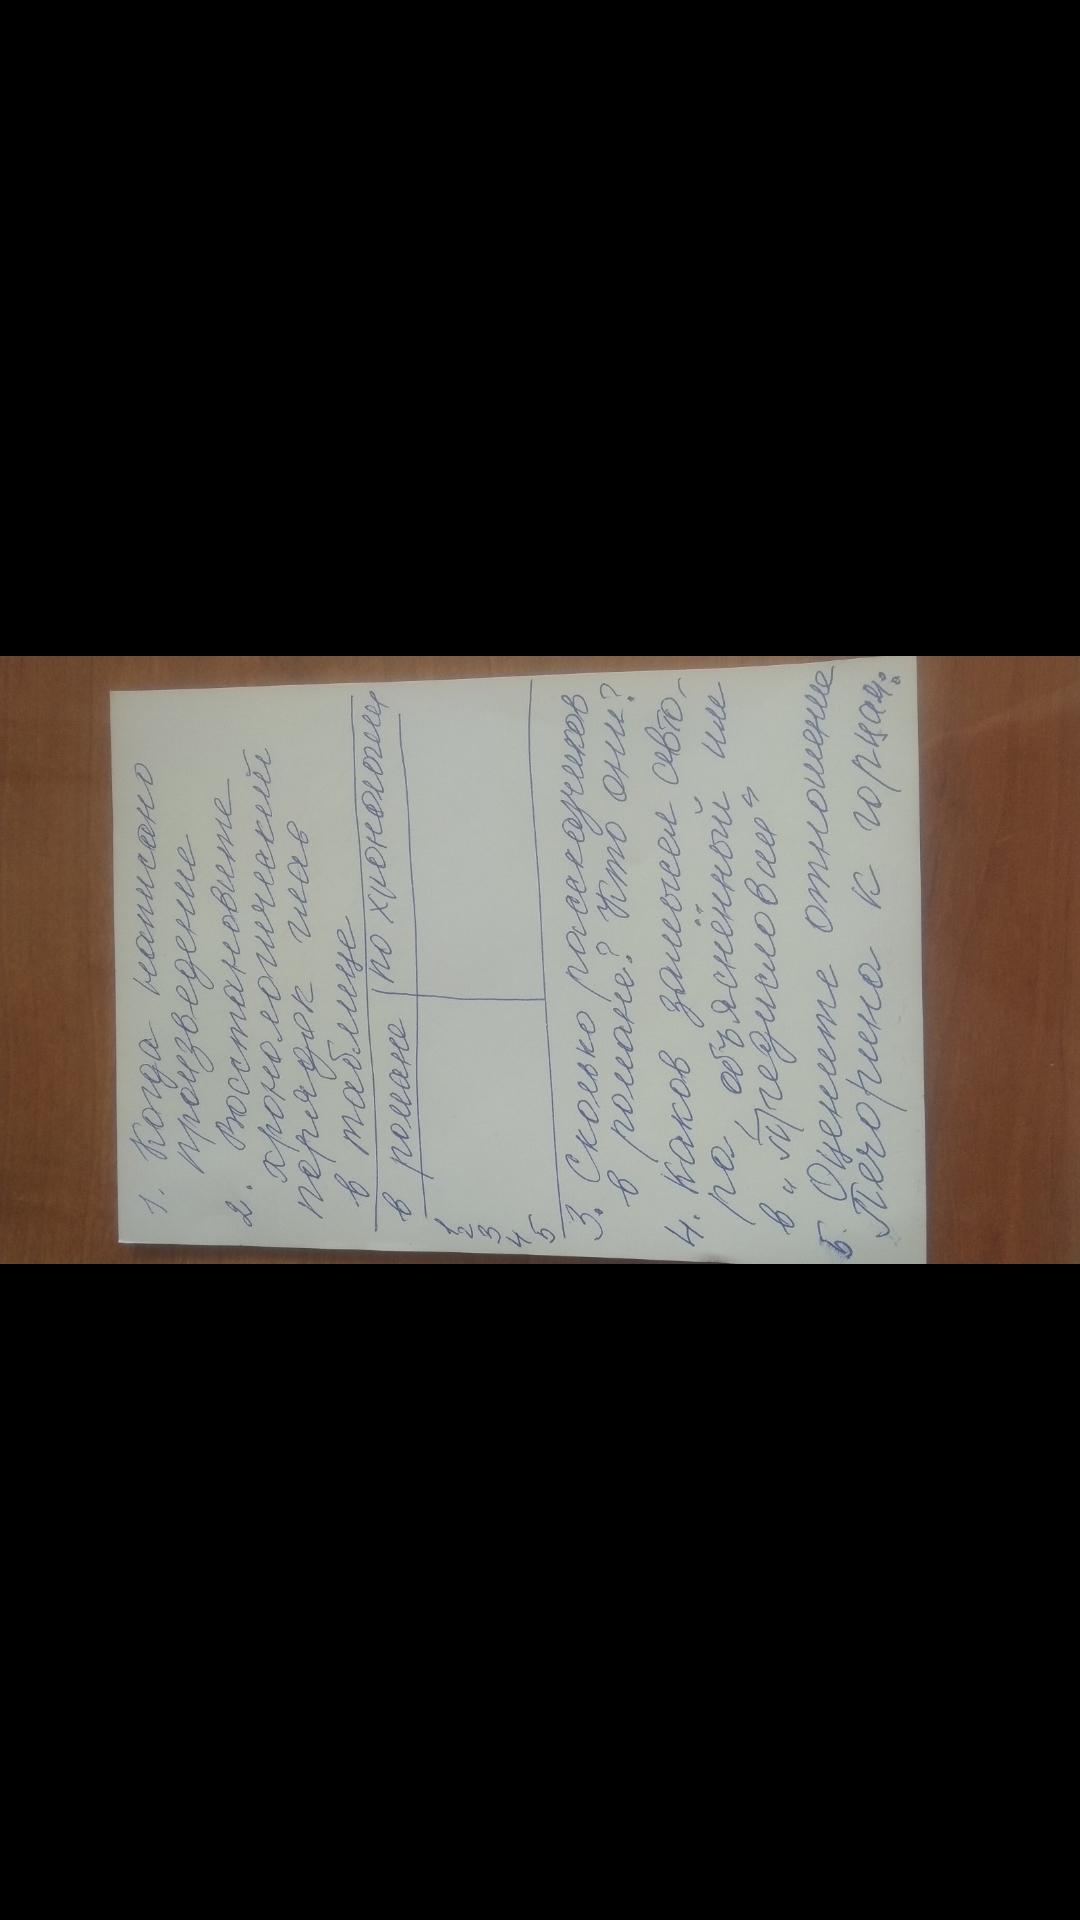 1. Когда написано
произведение
2. Востановите
хронологический
порядок глав
в таблице
в романе по хронологии
1
2
3
4
5
3. Сколько рассказчиков
в романе? Кто они?
4. Каков замысел авто-
ра, объяснённый им
в "Предисловии"
5. Оцените отношение
Печорина к горцам.